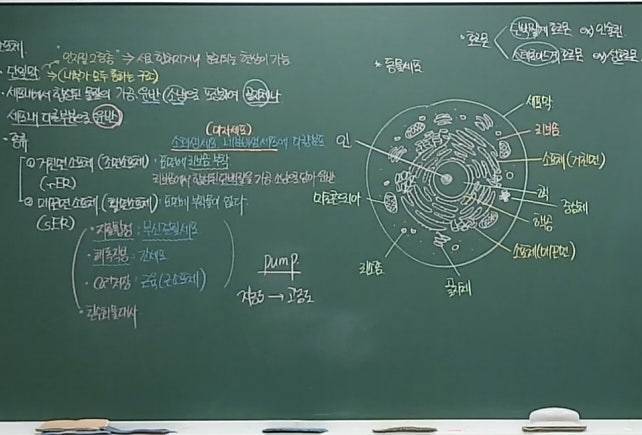 소포체.
"인지질 2중층" → 서로 합쳐지거나 분리되는 현상이 가능
· 단일막 → (내막과 모두 통하는 구조)
· 세포내에서 합성된 물질의 가공·운반 (소낭으로 포장하여 골지체나
세포내 다른부분으로 운반)
· 종류
(대사세포)
① 거친면 소포체 (조면소포체) : 표면에 리보솜 부착
(rER)
리보솜에서 합성된 단백질을 가공 소낭으로 담아 운반
② 매끈면 소포체 (활면소포체) : 표면에 부착물이 없다.
(sER)
· 지질합성 : 부신겉질세포
· 해독작용 : 간세포
· Ca저장 : 근육(근소포체)
· 탄수화물대사
pump
저농도 → 고농도
· 호르몬
단백질계 호르몬 ex) 인슐린
스테로이드계 호르몬 ex) 성호르몬
* 동물세포
인
미토콘드리아
리소좀
골지체
세포막
리보솜
소포체(거친면)
핵
중심체
핵공
소포체(매끈면)